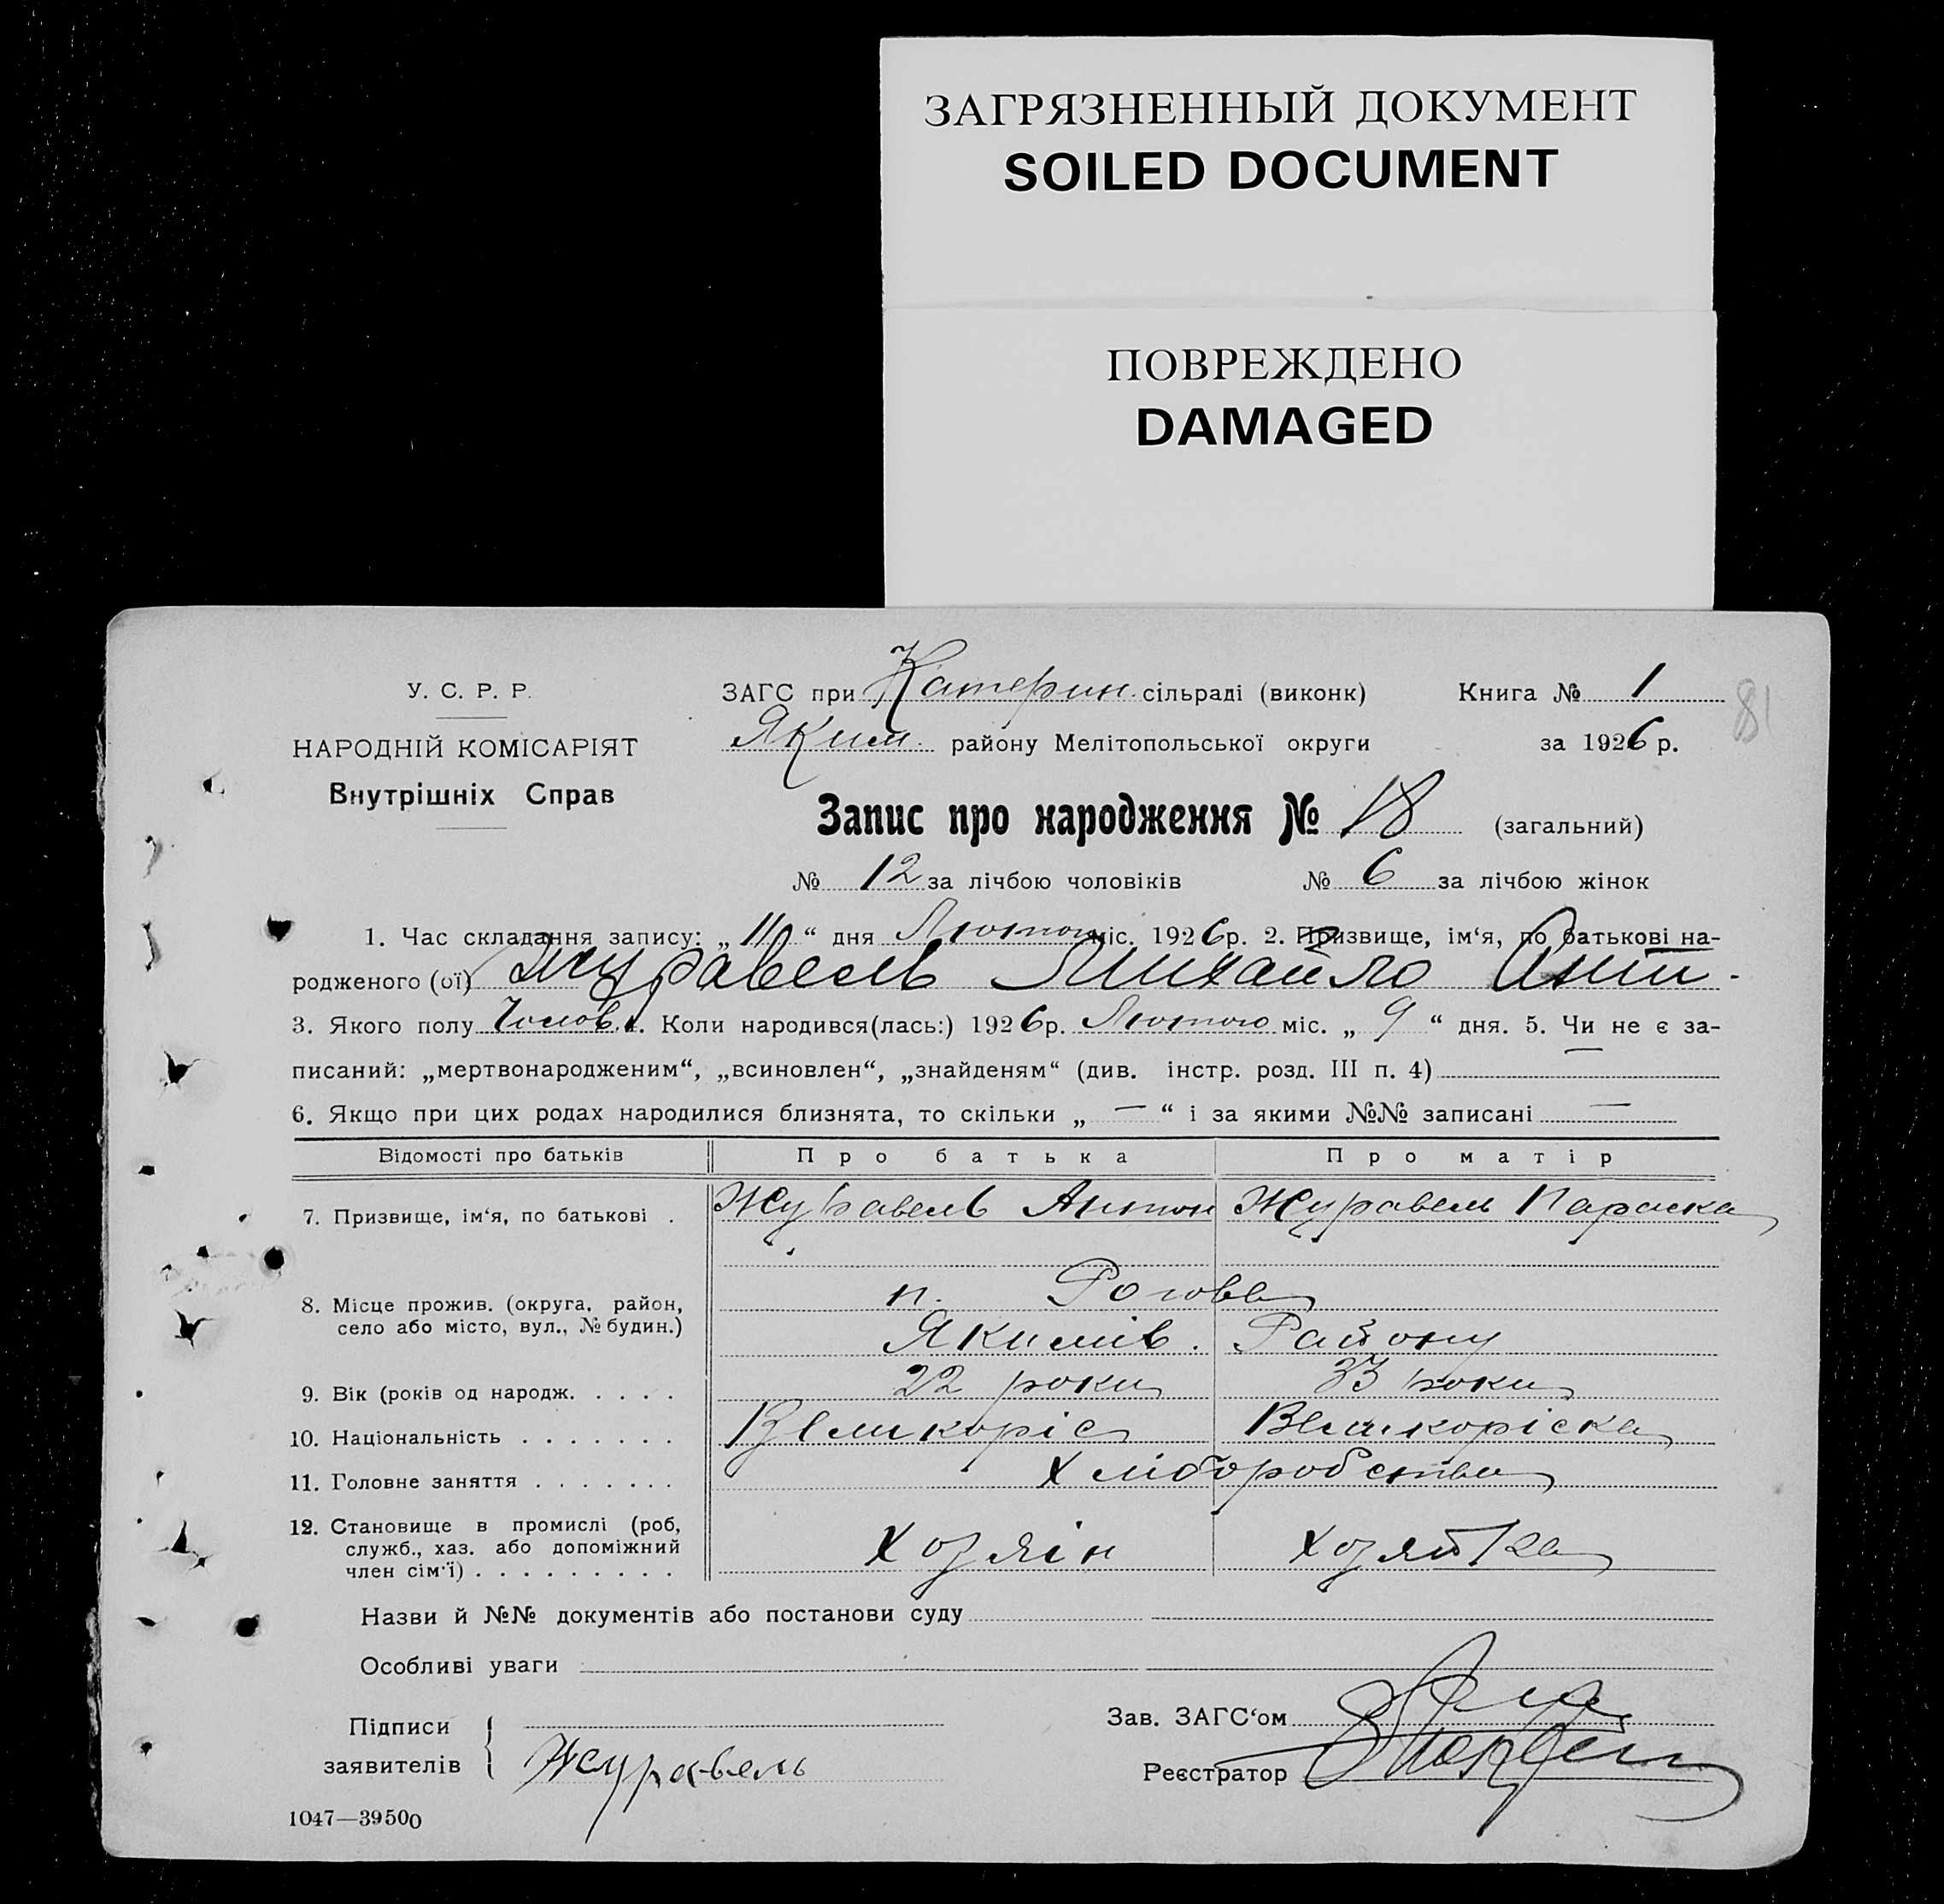 ЗАГРЯЗНЕННЫЙ ДОКУМЕНТ
SOILED DOCUMENT
ПОВРЕЖДЕНО
DAMAGED
У. С. Р. Р.
НАРОДНІЙ КОМІСАРІЯТ
Внутрішніх Справ
ЗАГС при Катерин. сільраді (виконк)
Яким. району Мелітопольської округи
Книга № 1
за 1926 р.
81
Запис про народження № 18 (загальний)
№ 12 за лічбою чоловіків № 6 за лічбою жінок
1. Час складання запису: „ 11 “ дня Лютого міс. 1926 р. 2. Призвище, ім‘я, по батькові на-
родженого (ої) Журавель Михайло Ант.
3. Якого полу Чолов. 4. Коли народився(лась:) 1926 р. Лютого міс. „ 9 “ дня. 5. Чи не є за-
писаний: „мертвонародженим“, „всиновлен“, „знайденям“ (див. інстр. розд. III п. 4) —
6. Якщо при цих родах народилися близнята, то скільки „ — “ і за якими №№ записані —
Відомості про батьків Про батька Про матір
7. Призвище, ім‘я, по батькові . Журавель Антон Журавель Параска
8. Місце прожив. (округа, район, село або місто, вул., № будин.) п.
Якимів. Району
9. Вік (років од народж. . . . . 22 роки 33 роки
10. Національність . . . . . . . Великоріс Великоріска
11. Головне заняття . . . . . . . Хліборобства
12. Становище в промислі (роб,
служб., хаз. або допоміжний
член сім‘ї) . . . . . . . . . Хозяін Хозяйка
Назви й №№ документів або постанови суду
Особливі уваги
Підписи
заявителів
Журавель
Зав. ЗАГС‘ом
Реєстратор
1047—39500